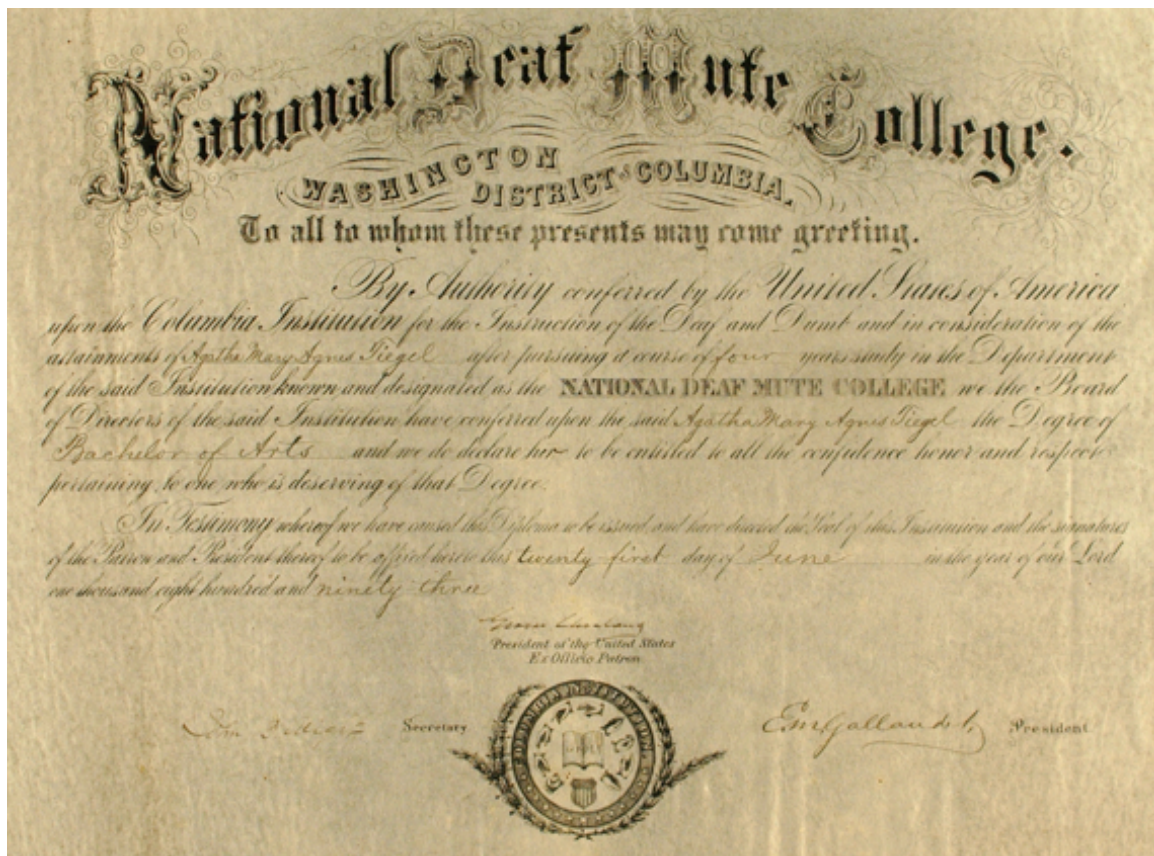 National Deaf Mute College.
WASHINGTON
DISTRICT of COLUMBIA.
To all to whom these presents may come greeting.
By Authority conferred by the United States of America
upon the Columbia Institution for the Instruction of the Deaf and Dumb and in consideration of the
attainments of Agatha Mary Agnes Tiegel after pursuing a course of four years study in the Department
of the said Institution known and designated as the NATIONAL DEAF MUTE COLLEGE we the Board
of Directors of the said Institution have conferred upon the said Agatha Mary Agnes Tiegel the Degree of
Bachelor of Arts and we do declare her to be entitled to all the confidence honor and respect
pertaining to one who is deserving of that Degree.
In Testimony whereof we have caused this Diploma to be issued and have directed the Seal of this Institution and the signatures
of the Patron and President thereof to be affixed hereto this twenty first day of June in the year of our Lord
one thousand eight hundred and ninety three
Grover Cleveland
President of the United States
Ex Officio Patron
Secretary
EMGallaudet, President
COLUMBIA INSTITUTION